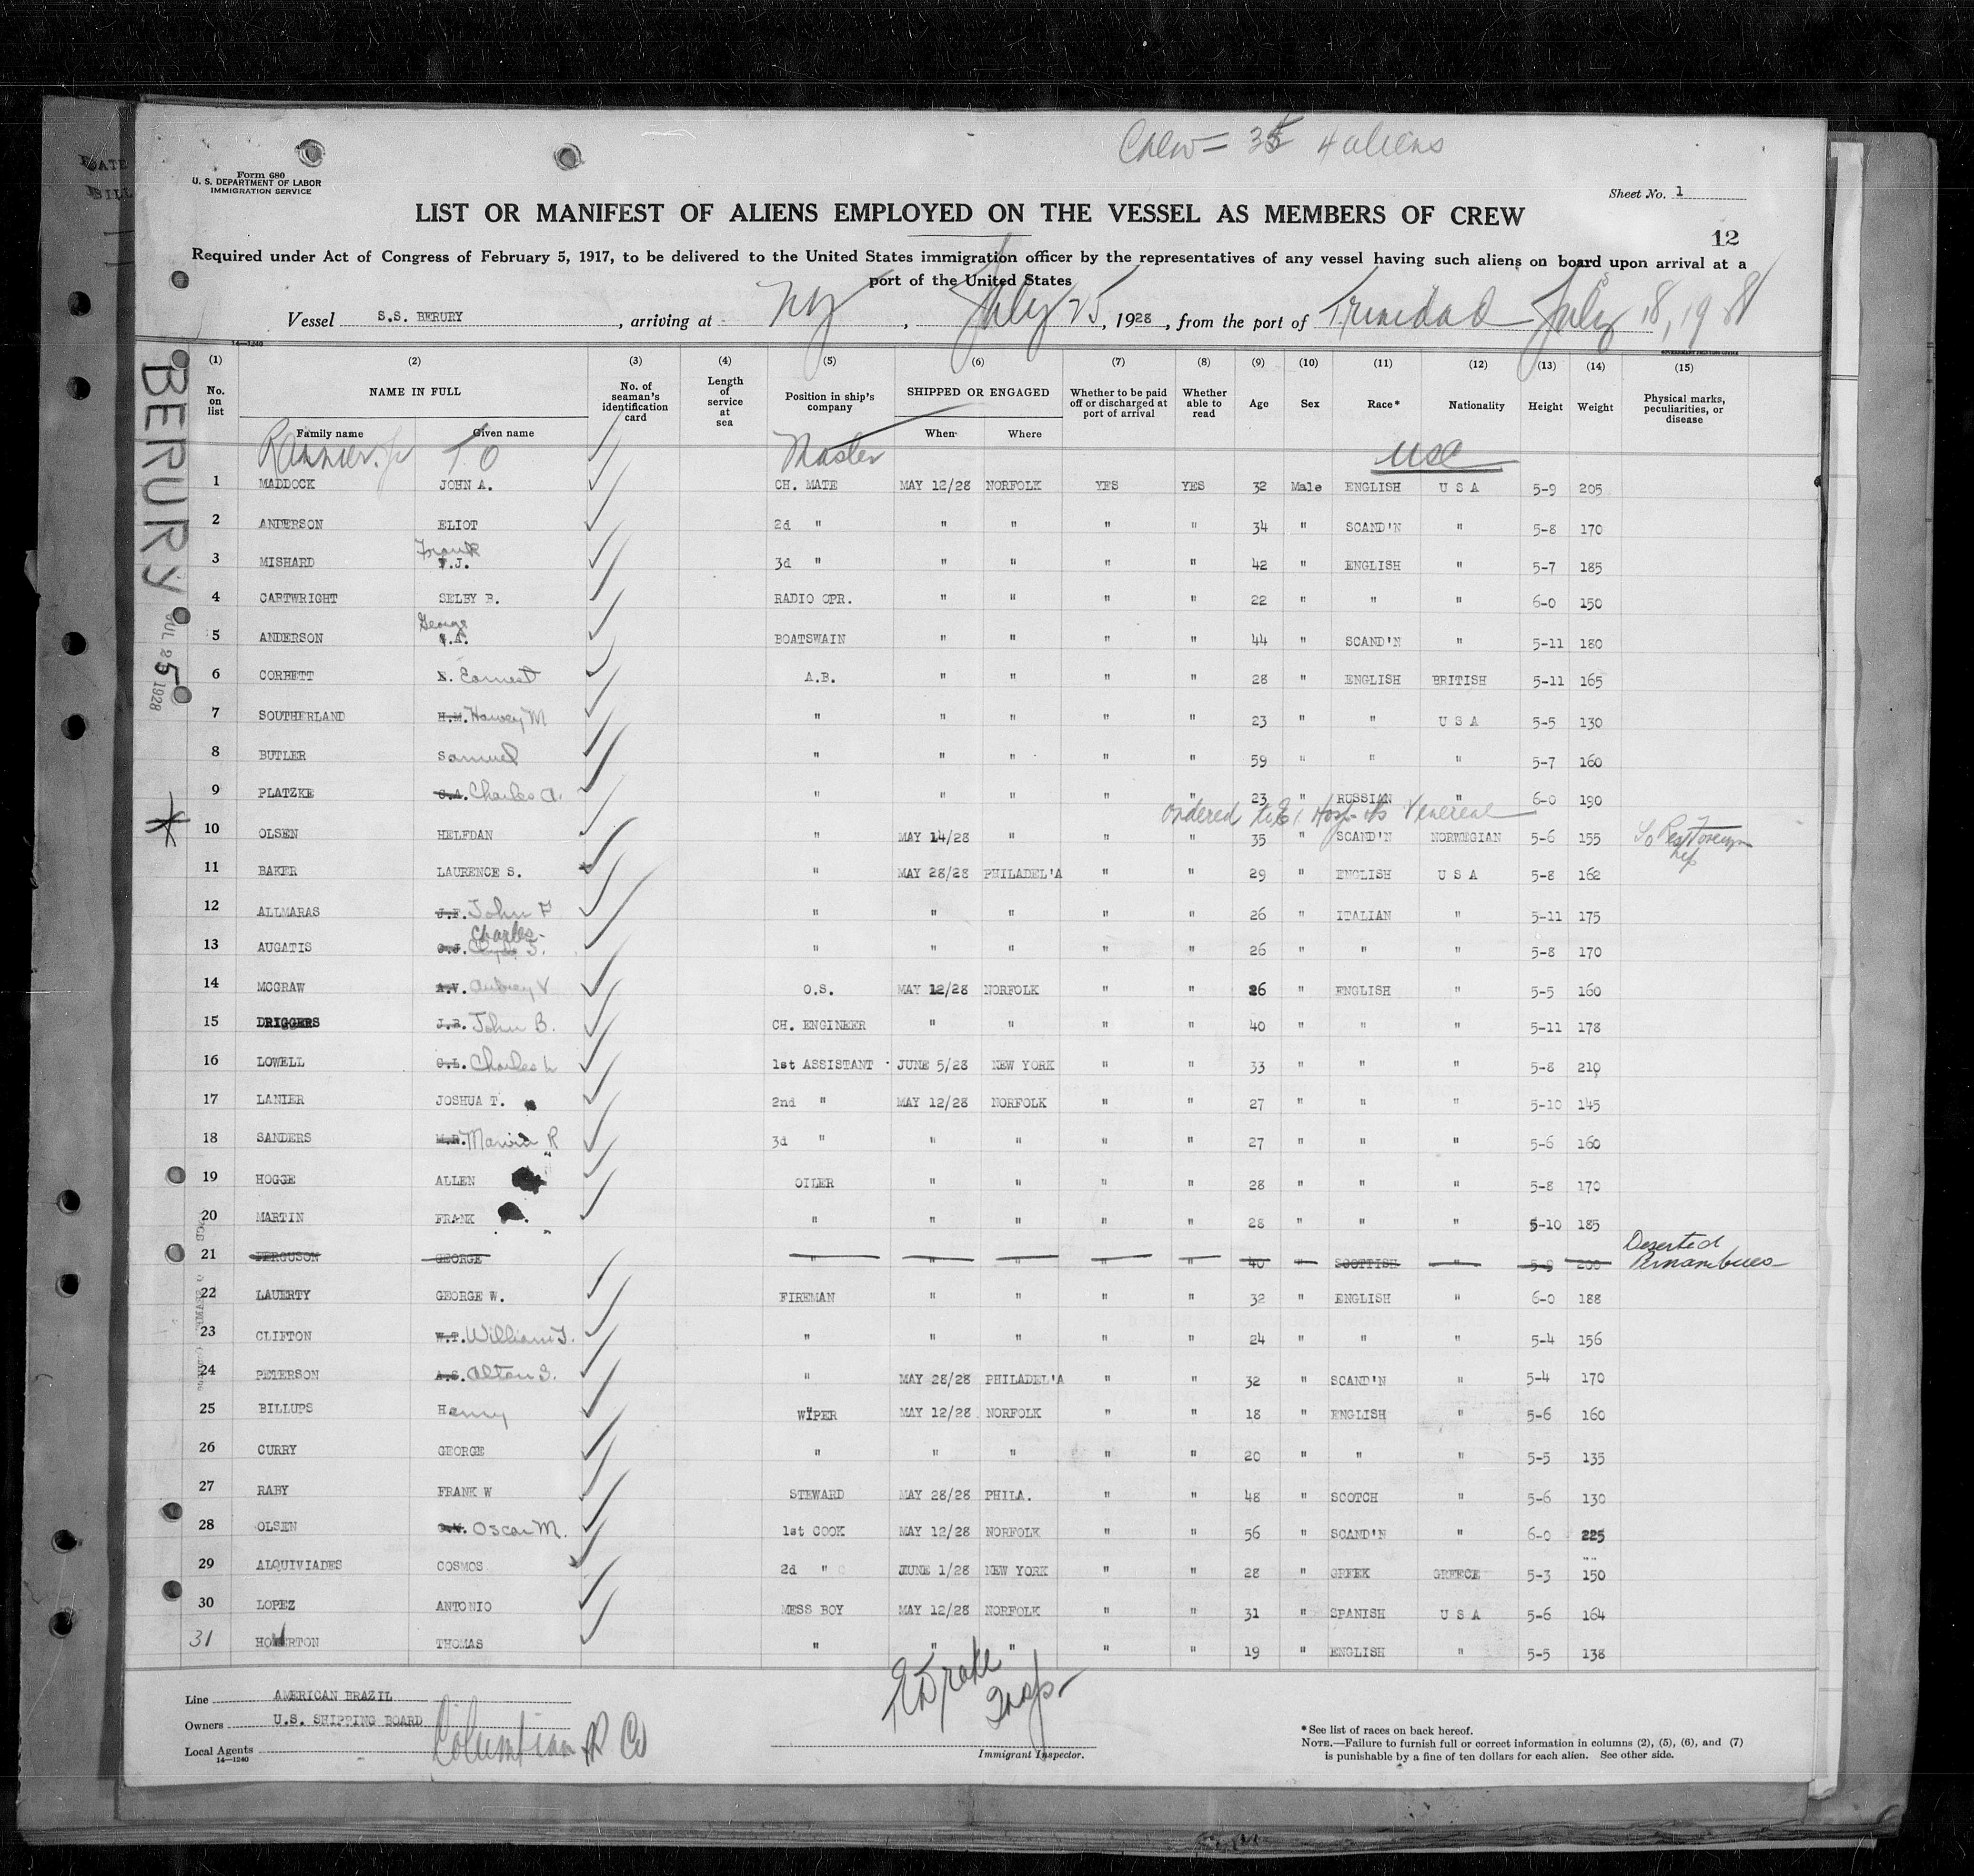 Crew = 35 4 aliens
Form 680
U. S. DEPARTMENT OF LABOR
IMMIGRATION SERVICE
Sheet No. 1
LIST OR MANIFEST OF ALIENS EMPLOYED ON THE VESSEL AS MEMBERS OF CREW
12
Required under Act of Congress of February 5, 1917, to be delivered to the United States immigration officer by the representatives of any vessel having such aliens on board upon arrival at a
port of the United States
Vessel S.S. BERURY, arriving at NY, July 25, 1928, from the port of Trinidad July 18, 1928
14—1240
(1) (2) (3) (4) (5) (6) (7) (8) (9) (10) (11) (12) (13) (14) (15)
No. on list NAME IN FULL No. of seaman's identification card Length of service at sea Position in ship's company SHIPPED OR ENGAGED Whether to be paid off or discharged at port of arrival Whether able to read Age Sex Race* Nationality Height Weight Physical marks, peculiarities, or disease
Family name Given name When Where
T O Master USC
1 MADDOCK JOHN A. CH. MATE MAY 12/28 NORFOLK YES YES 32 Male ENGLISH U S A 5-9 205
2 ANDERSON ELIOT 2d " " " " " 34 " SCAND'N " 5-8 170
Frank
3 MISHARD F.J. 3d " " " " " 42 " ENGLISH " 5-7 185
4 CARTWRIGHT SELBY B. RADIO OPR. " " " " 22 " " " 6-0 150
George
5 ANDERSON A. BOATSWAIN " " " " 44 " SCAND'N " 5-11 180
6 CORBETT E. Earnest A.B. " " " " 28 " ENGLISH BRITISH 5-11 165
7 SOUTHERLAND H.M. Harvey M " " " " " 23 " " U S A 5-5 130
8 BUTLER Samuel " " " " " 59 " " " 5-7 160
9 PLATZKE C.A. Charles A. " " " " " 23 " RUSSIAN " 6-0 190
Ordered to E.I. Hosp. Venereal
10 OLSEN HELFDAN " MAY 14/28 " " " 35 " SCAND'N NORWEGIAN 5-6 155 To Foreign
11 BAKER LAURENCE S. " MAY 28/28 PHILADEL'A " " 29 " ENGLISH U S A 5-8 162
12 ALLMARAS J.F. John F " " " " " 26 " ITALIAN " 5-11 175
Charles
13 AUGATIS C.J. Clyde J. " " " " " 26 " " " 5-8 170
14 MCGRAW A.V. Aubrey V O.S. MAY 12/28 NORFOLK " " 26 " ENGLISH " 5-5 160
15 DRIGGERS J.B. John B. CH. ENGINEER " " " " 40 " " " 5-11 178
16 LOWELL C.L. Charles L 1st ASSISTANT JUNE 5/28 NEW YORK " " 33 " " " 5-8 210
17 LANIER JOSHUA T. 2nd " MAY 12/28 NORFOLK " " 27 " " " 5-10 145
18 SANDERS M.R. Marvin R 3d " " " " " 27 " " " 5-6 160
19 HOGGE ALLEN OILER " " " " 28 " " " 5-8 170
20 MARTIN FRANK " " " " " 28 " " " 5-10 185
21 FERGUSON GEORGE " " " " " 40 " SCOTTISH " 5-9 200 Deserted Pernambuco
22 LAUERTY GEORGE W. FIREMAN " " " " 32 " ENGLISH " 6-0 188
23 CLIFTON W.T. William T. " " " " " 24 " " " 5-4 156
24 PETERSON A.S. Alton S. " MAY 28/28 PHILADEL'A " " 32 " SCAND'N " 5-4 170
25 BILLUPS Henry WIPER MAY 12/28 NORFOLK " " 18 " ENGLISH " 5-6 160
26 CURRY GEORGE " " " " " 20 " " " 5-5 135
27 RABY FRANK W STEWARD MAY 28/28 PHILA. " " 48 " SCOTCH " 5-6 130
28 OLSEN O.M. Oscar M. 1st COOK MAY 12/28 NORFOLK " " 56 " SCAND'N " 6-0 225
29 ALQUIVIADES COSMOS 2d " JUNE 1/28 NEW YORK " " 28 " GREEK GREECE 5-3 150
30 LOPEZ ANTONIO MESS BOY MAY 12/28 NORFOLK " " 31 " SPANISH U S A 5-6 164
31 HOWERTON THOMAS " " " " " 19 " ENGLISH " 5-5 138
Line AMERICAN BRAZIL
Owners U.S. SHIPPING BOARD
Local Agents Columbian Co
14—1240
E Drake Insp
Immigrant Inspector.
*See list of races on back hereof.
NOTE.—Failure to furnish full or correct information in columns (2), (5), (6), and (7)
is punishable by a fine of ten dollars for each alien. See other side.
BERURY
JUL 25 1928